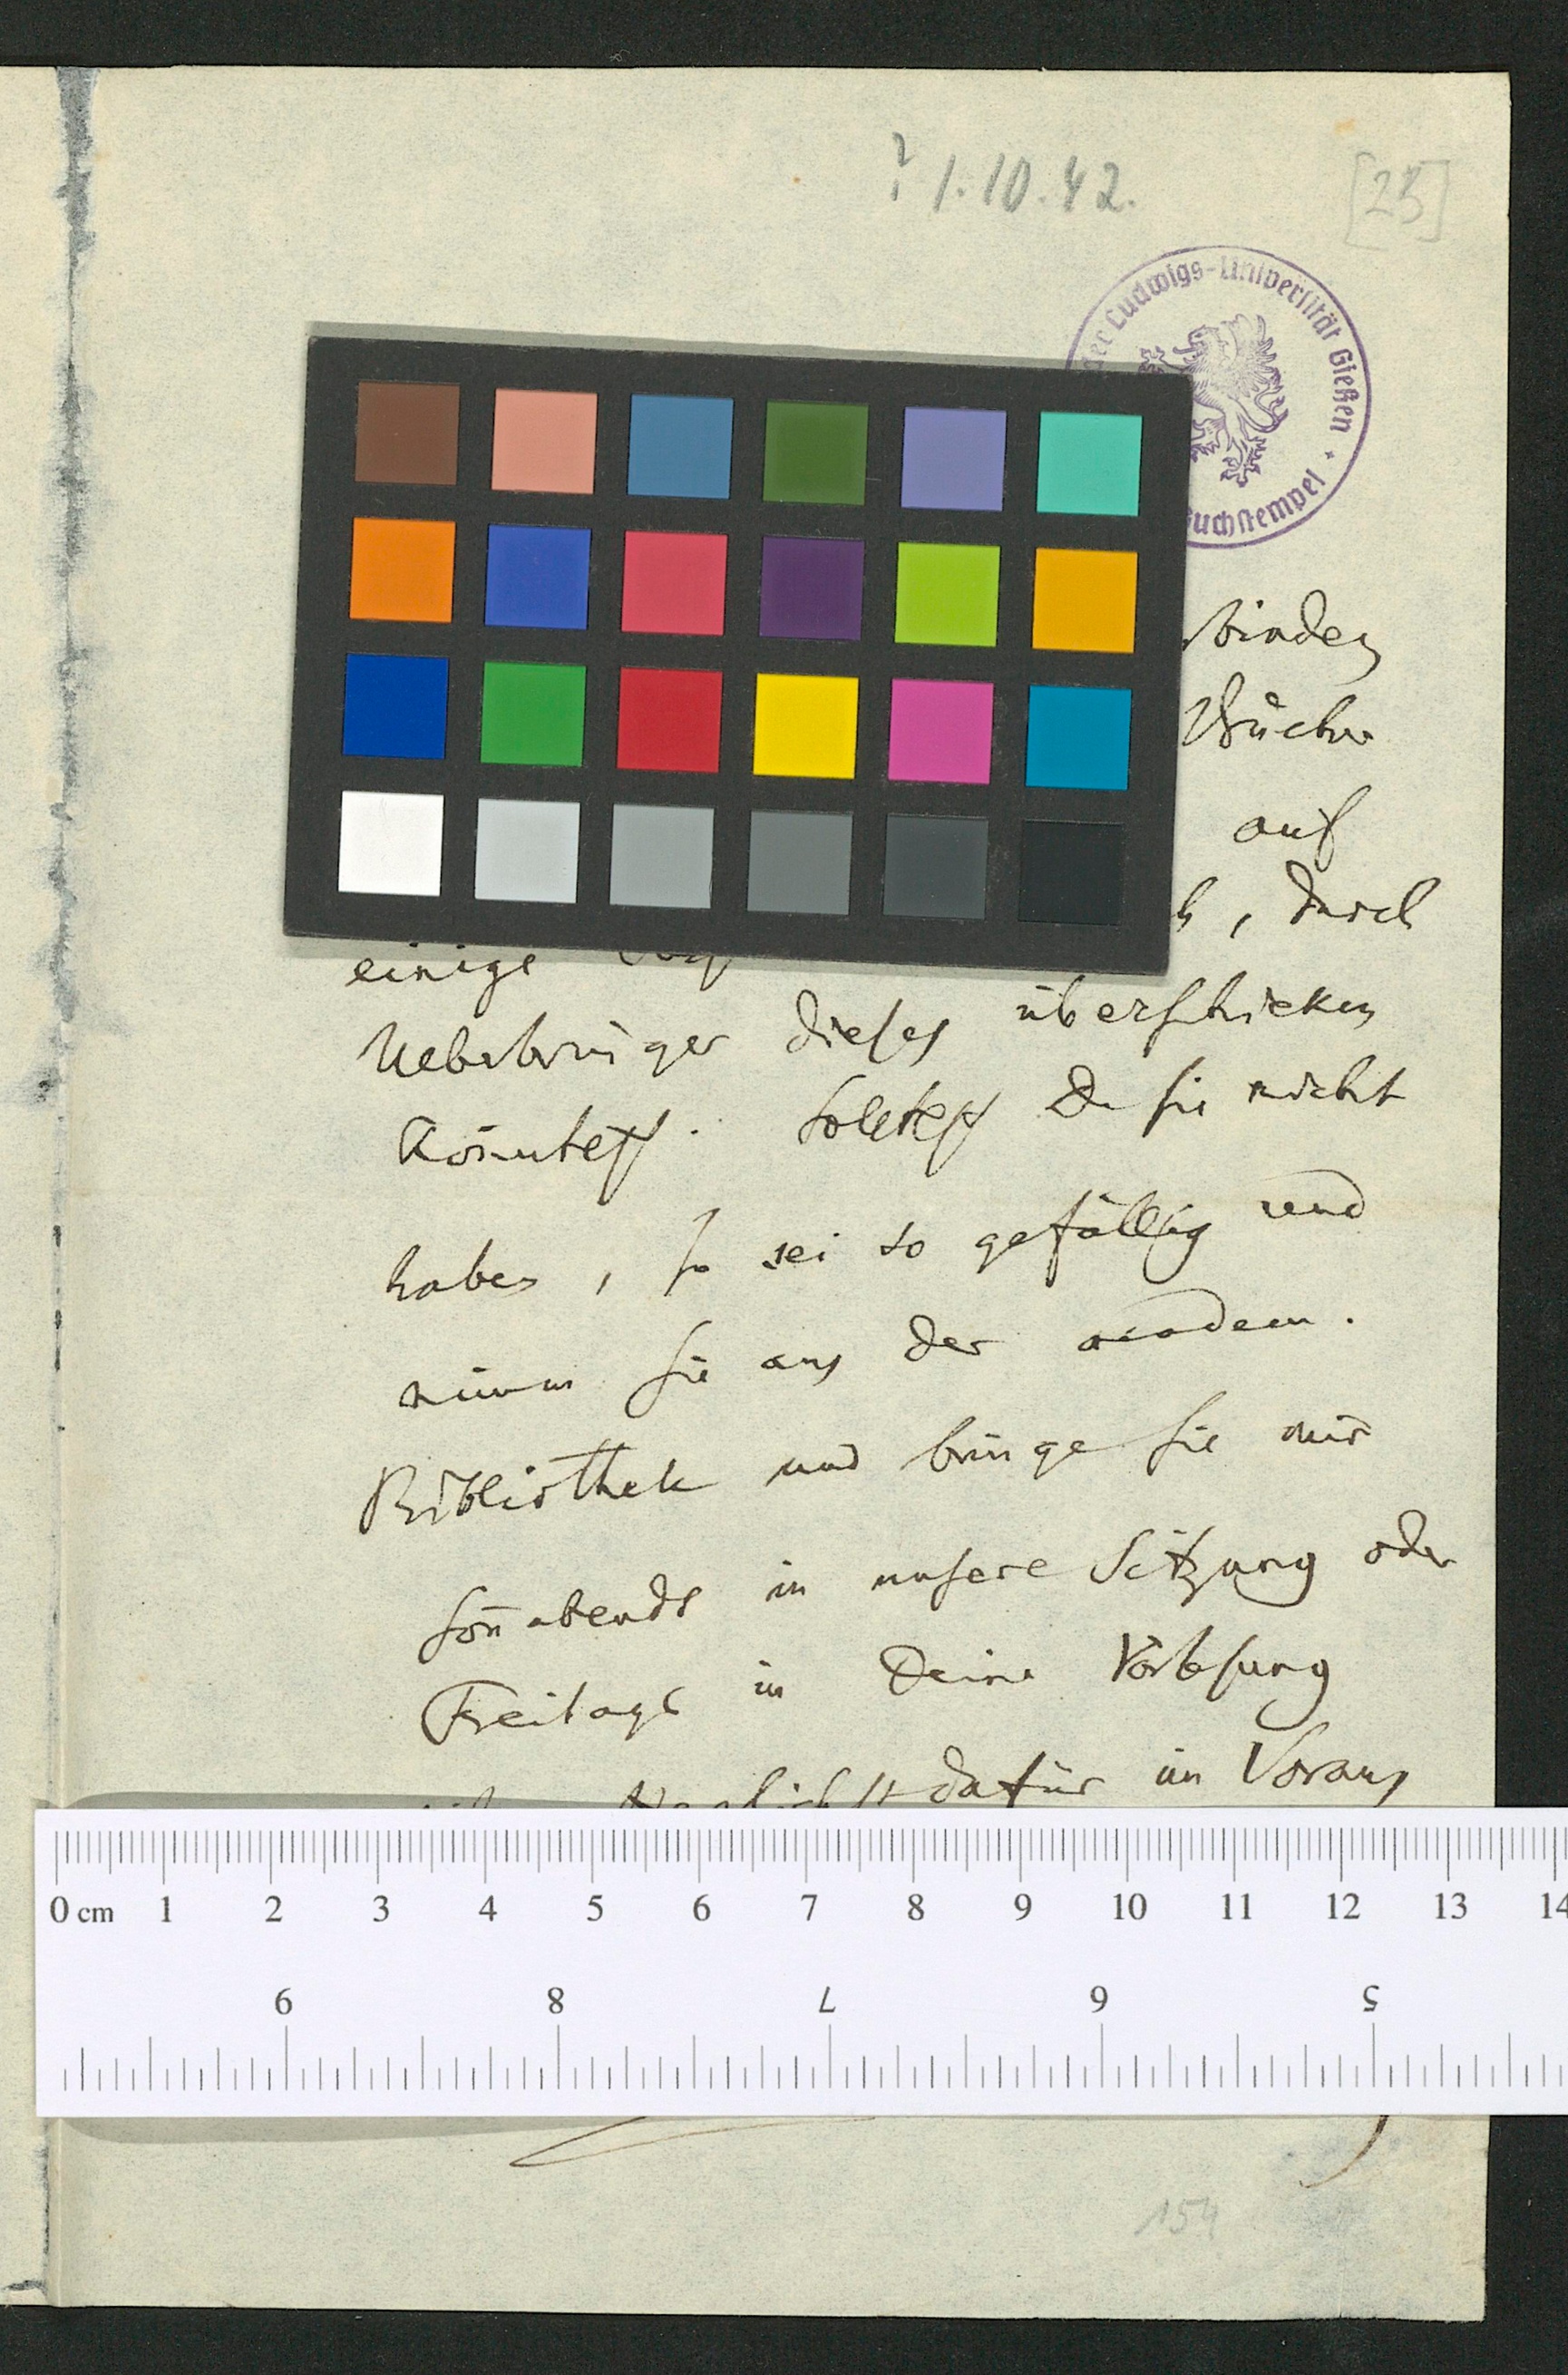 ? 1.10.42.
[25]
der Ludwigs-Universität Gießen
Buchstempel
binden
Bücher
auf
, durch
einige
Ueberbringer dieses überschicken
könntest. Solltest Du sie nicht
haben, so sei so gefällig und
nimm sie aus der academ.
Bibliothek und bringe sie mir
Sonnabends in unsere Sitzung oder
Freitags in Deine Vorlesung
dafür im Voraus
0 cm 1 2 3 4 5 6 7 8 9 10 11 12 13 14
9 8 7 6 5
154